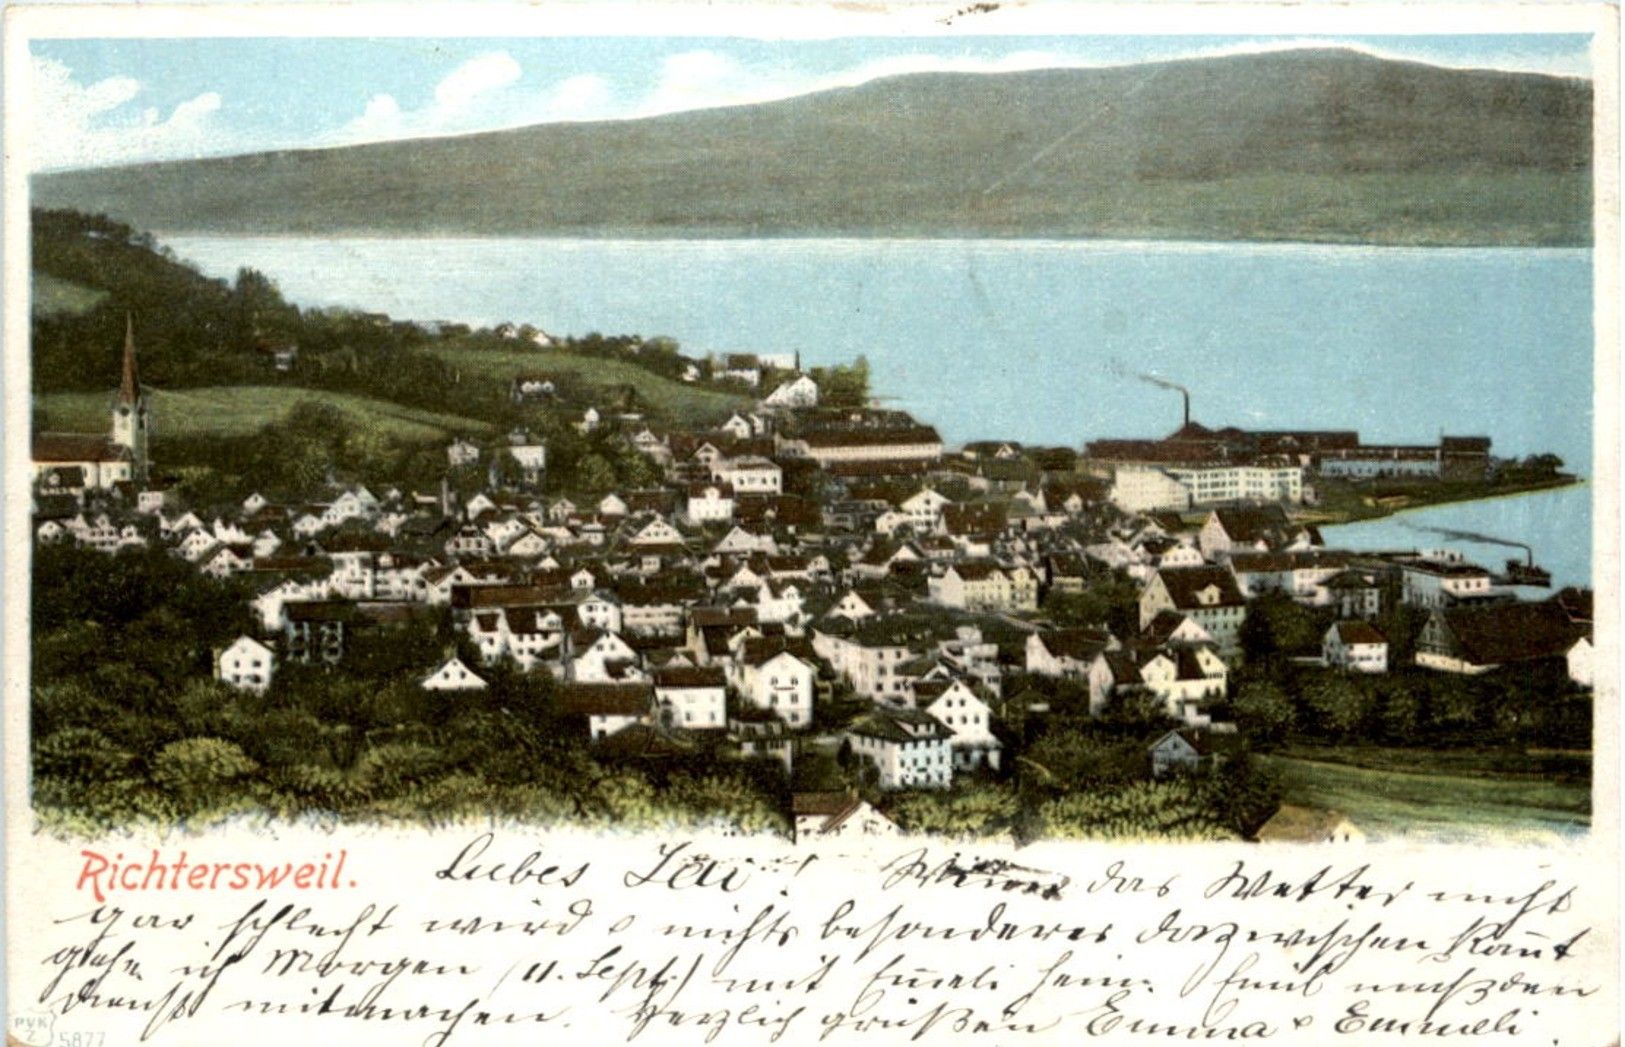 Richtersweil.
Liebes Idi! Wenn das Wetter nicht
gar schlecht wird & nichts besonderes dazwischen kommt
gehe ich Morgen (11. Sept.) mit Emeli heim. Emil muss den
Dienst mitmachen. Herzlich grüßen Emma & Emmeli.
PVK
Z
5877